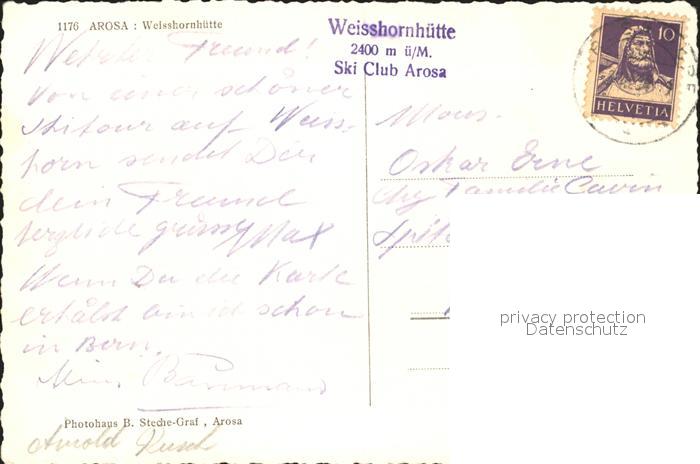 1176 AROSA : Weisshornhütte
Weisshornhütte
2400 m ü/M.
Ski Club Arosa
10
HELVETIA
Freund!
von einer schöner
Skitour auf Weiss-
horn sendet Dir
dein Freund
herzliche grüsse Max
Wenn Du die Karte
erhälst bin ich schon
in Bern.
Mons.
Oskar Erne
Familie Cavin
privacy protection
Datenschutz
Photohaus B. Steche-Graf , Arosa
Arnold